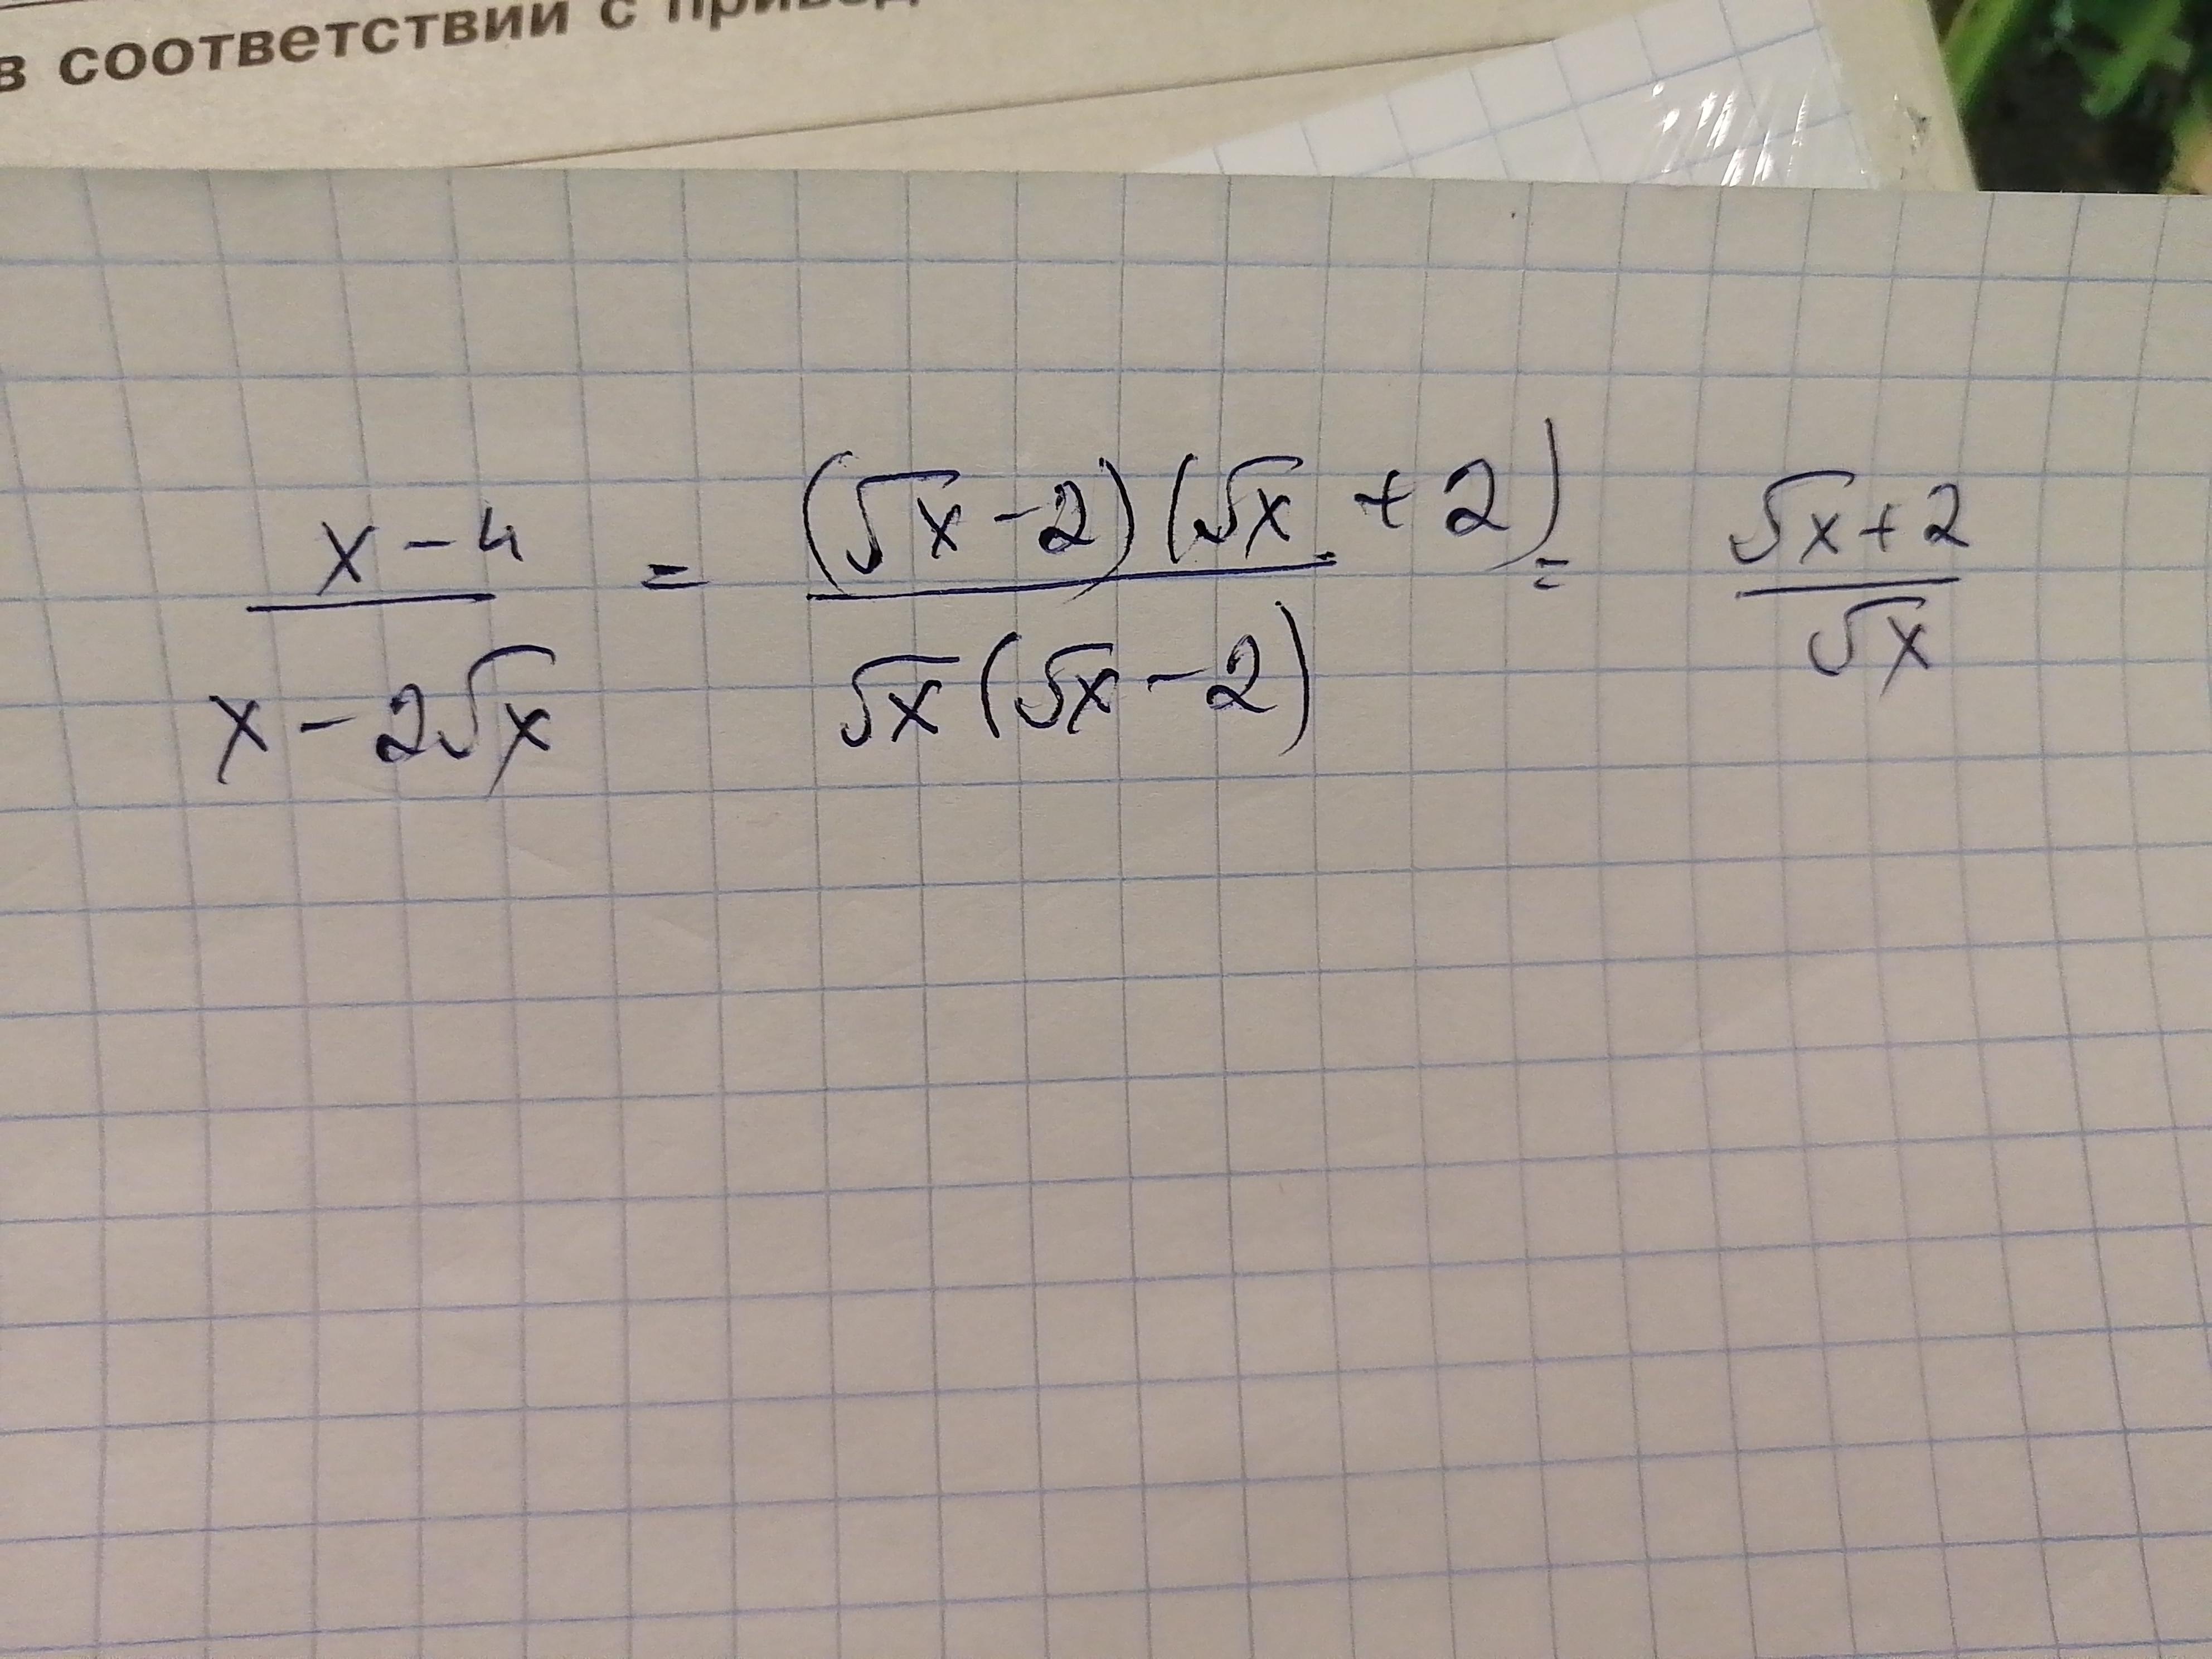 в соответствии с привед
x - 4 / x - 2√x = (√x - 2)(√x + 2) / √x(√x - 2) = √x + 2 / √x